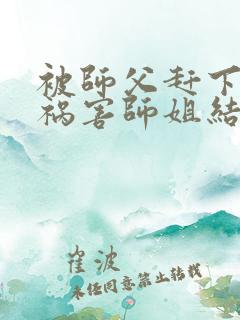 被師父赶下
祸害師姐結
崔波
未经同意禁止转载